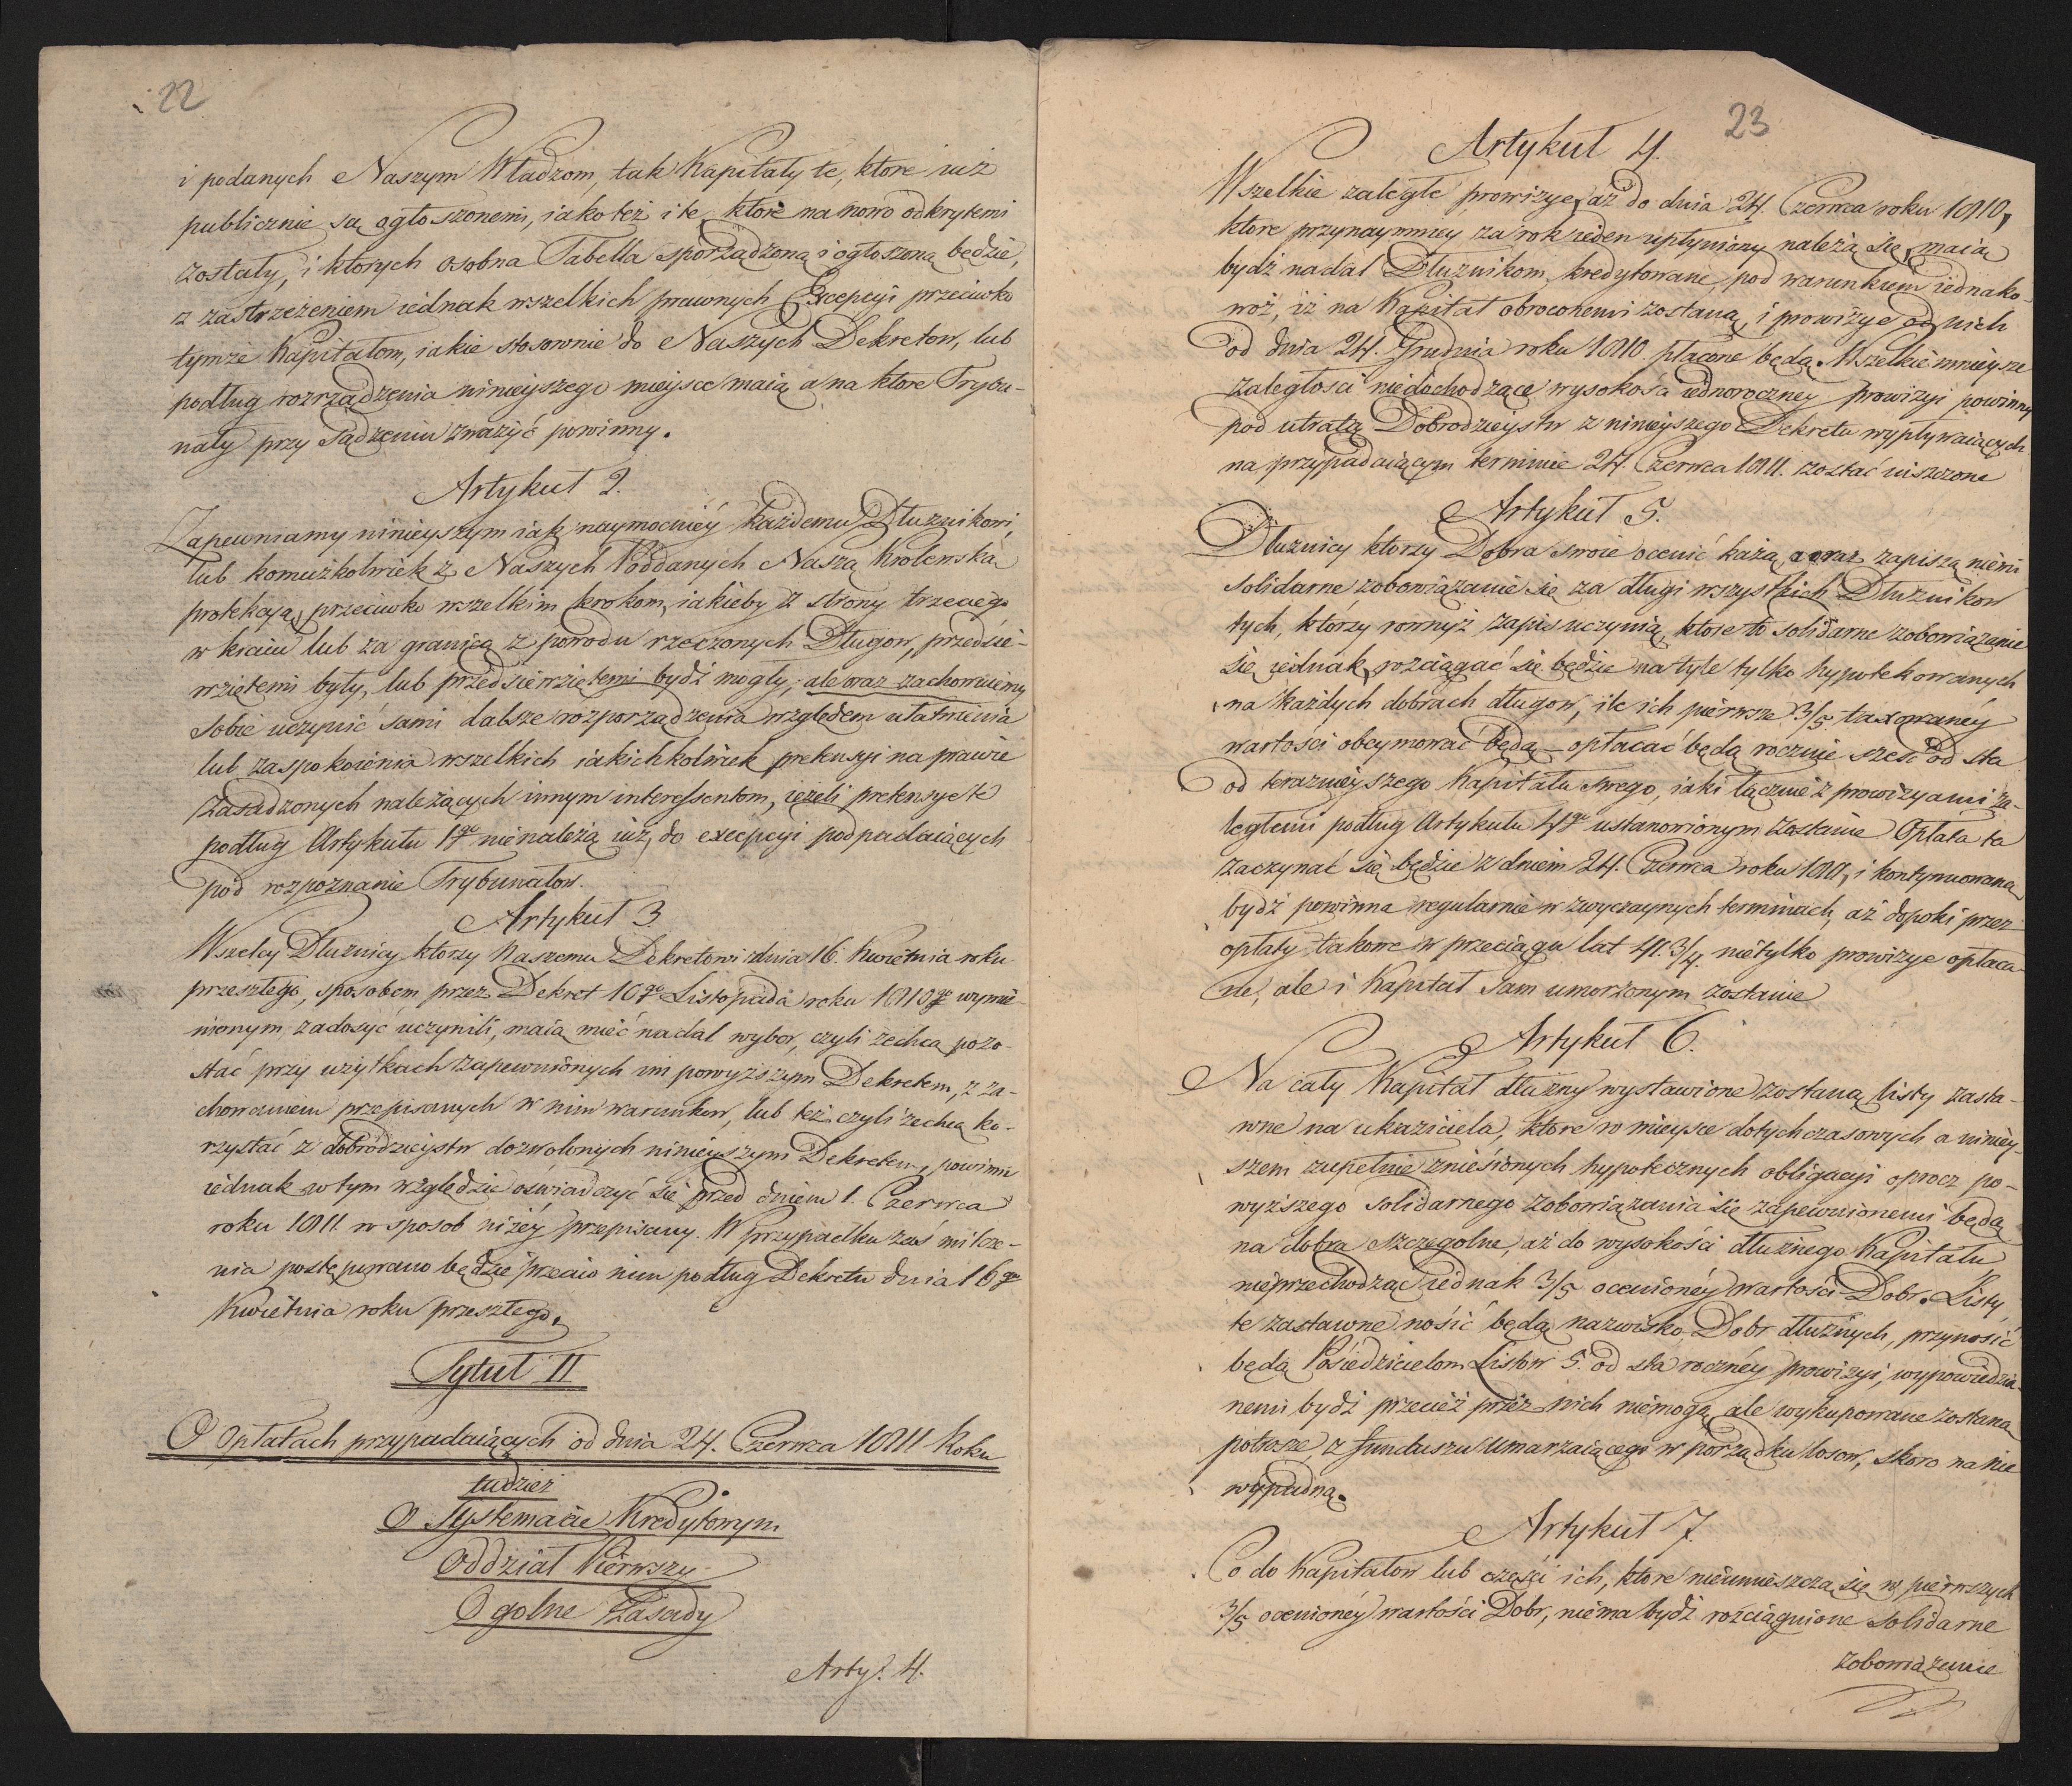 22
i podanych Naszym Władzom, tak Kapitały te, ktore iuż
publicznie są ogłoszonemi, iako też i te, ktore na nowo odkrytemi
zostały, i ktorych osobna Tabella sporządzoną i ogłoszoną będzie,
z zastrzeżeniem iednak wszelkich prawnych Excepcyi przeciwko
tymże Kapitałom, iakie stosownie do Naszych Dekretow, lub
podług rozrządzenia ninieyszego mieysce maią a na ktore Trybu-
nały przy sądzeniu zważyć powinny.
Artykuł 2.
Zapewniamy ninieyszym iak naymocniéy każdemu Dłużnikowi,
lub komużkolwiek z Naszych Poddanych Naszą Krolewską
protekcyą, przeciwko wszelkim krokom, iakieby z strony trzeciego
w kraiu lub za granicą z powodu rzeczonych Długow, przedsie-
wziętemi były, lub przedsiewziętemi bydź mogły; ale oraz zachowuiemy
sobie uczynić sami dalsze rozporządzenia względem ułatwienia
lub zaspokoienia wszelkich iakichkolwiek pretensyi na prawie
zasadzonych należących innym interessentom, ieżeli pretensye te
podług Artykułu 1go nienależą iuż, do excepcyi podpadaiących
pod rozpoznanie Trybunałow.
Artykuł 3.
Wszelcy Dłużnicy ktorzy Naszemu Dekretowi z dnia 16. Kwietnia roku
przeszłego, sposobem przez Dekret 10go Listopada roku 1810go wymie-
nionym, zadosyć uczynili, maią mieć nadal wybor, czyli zechcą pozo-
stać przy użytkach zapewnionych im powyższym Dekretem, z za-
chowaniem przepisanych w nim warunkow, lub też czyli zechcą ko-
rzystać z dobrodzieystw dozwolonych ninieyszym Dekretem, powinni
iednak w tym względzie oświadczyć się przed dniem 1. Czerwca
roku 1811. w sposob niżéy przepisany. W przypadku zaś milcze-
nia postępowano będzie przeciw nim podług Dekretu dnia 16go
Kwietnia roku przeszłego.
Tytuł II
O Opłatach przypadaiących od dnia 24. Czerwca 1811 Roku
tudzież
O Systemacie Kredytowym
Oddział Pierwszy
Ogolne Zasady
Arty. 4.
23
Artykuł 4.
Wszelkie zaległe prowizye, aż do dnia 24. Czerwca roku 1810,
ktore przynaymniey za rok ieden upłyniony należą się, maią
bydź nadal Dłużnikom kredytowane, pod warunkiem iednako-
woż, iż na Kapitał obroconemi zostaną, i prowizye od nich
od dnia 24. Grudnia roku 1810. płacone będą. Wszelkie mnieysze
zaległości niedochodzące wysokości iednoroczney prowizyi powinny
pod utratą Dobrodzieystw z ninieyszego Dekretu wypływaiących
na przypadaiącym terminie 24. Czerwca 1811. zostać uiszczone
Artykuł 5.
Dłużnicy ktorzy Dobra swoie ocenić każą, oraz zapiszą niemi
solidarne zobowiązanie się za długi wszystkich Dłużnikow
tych, którzy rownyż zapis uczynią, ktore to solidarne zobowiązanie
się iednak rozciągać się będzie na tyle tylko hypotekowanych
na każdych dobrach długow, ile ich pierwsze 3/5. taxowanéy
wartości obeymować będą – opłacać będą rocznie sześć od sta
od teraznieyszego Kapitału swego, iaki łącznie z prowizyami za-
ległemi podług Artykułu 4go ustanowionym zostanie Opłata ta
zaczynać się będzie z dniem 24. Czerwca roku 1811, i kontynuowaną
bydź powinna regularnie w zwyczaynych terminach, aż dopoki przez
opłaty takowe w przeciągu lat 41. 3/4. nietylko prowizye opłaca-
ne, ale i Kapitał sam umorzonym zostanie
Artykuł 6.
Na cały Kapitał dłużny wystawione zostaną listy zasta-
wne na ukaziciela, ktore w mieysce dotychczasowych a niniey-
szem zupełnie zniesionych hypotecznych obligacyi oprocz po-
wyższego solidarnego zobowiązania się zapewnionemi będą
na dobra szczegolne, aż do wysokości dłużnego Kapitału
nieprzechodząc iednak 3/5 ocenionéy wartości Dobr. Listy
te zastawne nosić będą nazwisko Dobr dłużnych, przynosić
będą Posiedzicielom Listow 5. od sta rocznéy prowizyi, wypowiedzia-
nemi bydź przecież przez nich niemogą, ale wykupowane zostaną
potrosze, z funduszu umarzaiącego w porządku losow, skoro na nie
wypadną.
Artykuł 7.
Co do Kapitałow lub części ich, ktore nieumieszczą się w pierwszych
3/5 ocenionéy wartości Dobr, niema bydź rozciągnione solidarne
zobowiązanie